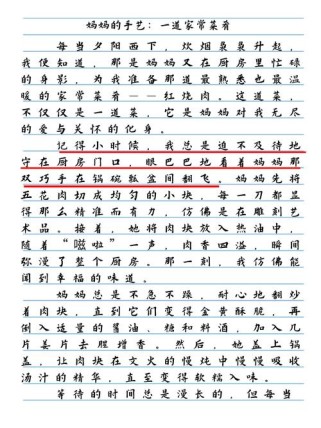 妈妈的手艺：一道家常菜肴
每当夕阳西下，炊烟袅袅升起，
我便知道，那是妈妈又在厨房里忙碌
的身影，为我准备那道最熟悉也最温
暖的家常菜肴——红烧肉。这道菜，
不仅仅是一道菜，它是妈妈对我无尽
的爱与关怀的化身。
记得小时候，我总是迫不及待地
守在厨房门口，眼巴巴地看着妈妈那
双巧手在锅碗瓢盆间翻飞。妈妈先将
五花肉切成均匀的小块，每一刀都显
得那么精准而有力，仿佛是在雕刻艺
术品。接着，她将肉块放入热油中，
随着“滋啦”一声，肉香四溢，瞬间
弥漫了整个厨房。那一刻，我仿佛能
闻到幸福的味道。
妈妈总是不急不躁，耐心地翻炒
着肉块，直到它们变得金黄酥脆，再
倒入适量的酱油、糖和料酒，加入几
片姜片去腥增香。然后，她盖上锅
盖，让肉块在文火的慢炖中慢慢吸收
汤汁的精华，直至变得软糯入味。
等待的时间总是漫长的，但每当